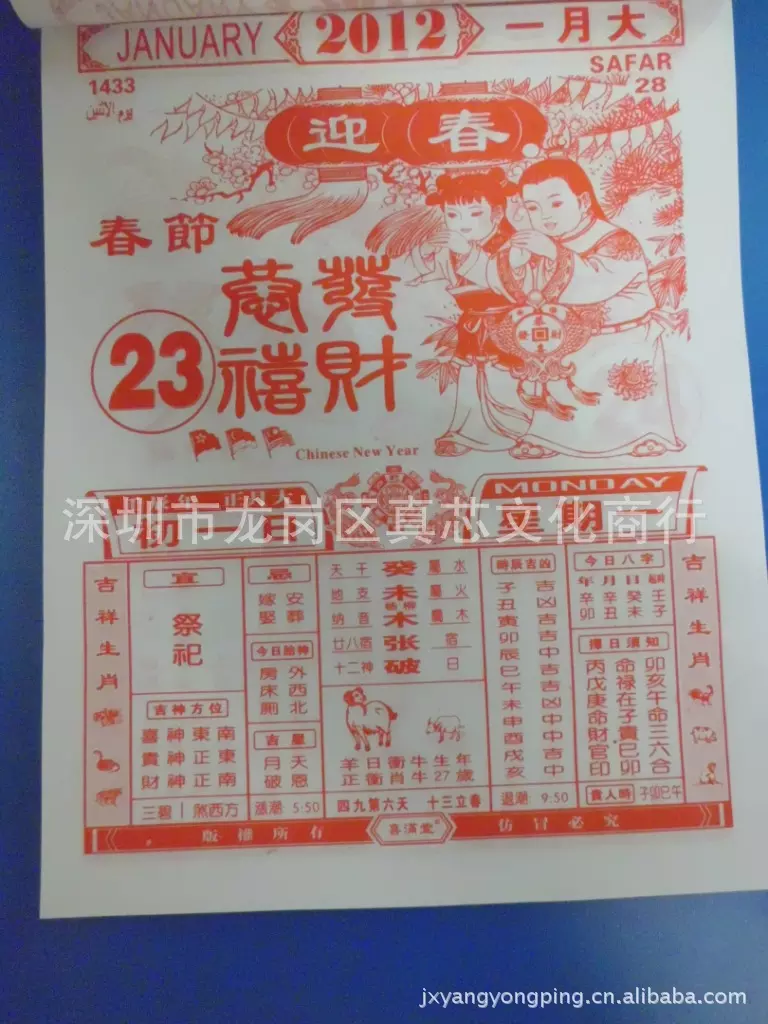 JANUARY 2012 一月大
1433 SAFAR
يوم الاثنين 28
迎春
春節
恭發
禧財
23
Chinese New Year
MONDAY
初一日 星期一
深圳市龙岗区真芯文化商行
吉祥生肖
宜
祭祀
吉神方位
喜神東南
貴神正東
財神正南
三碧 煞西方
忌
嫁安
娶葬
今日胎神
房外
床西
厠北
吉星
月天
破恩
漲潮 5:50
天干 癸 屬水
地支 未 屬火
納音 楊柳木 屬木
廿八宿 张 宿
十二神 破 日
羊日衝牛生年
正衝肖牛27歲
四九第六天 十三立春
時辰吉凶
子吉
丑凶
寅吉
卯吉
辰中
巳吉
午吉
未凶
申中
酉中
戌吉
亥中
退潮 9:50
今日八字
年月日起時
辛辛癸壬
卯丑未子
擇日須知
丙命卯
戊禄亥
庚在午
命子命
財貴三
官巳六
印卯合
貴人時 子卯巳午
吉祥生肖
版權所有 喜滿堂 仿冒必究
jxyangyongping.cn.alibaba.com